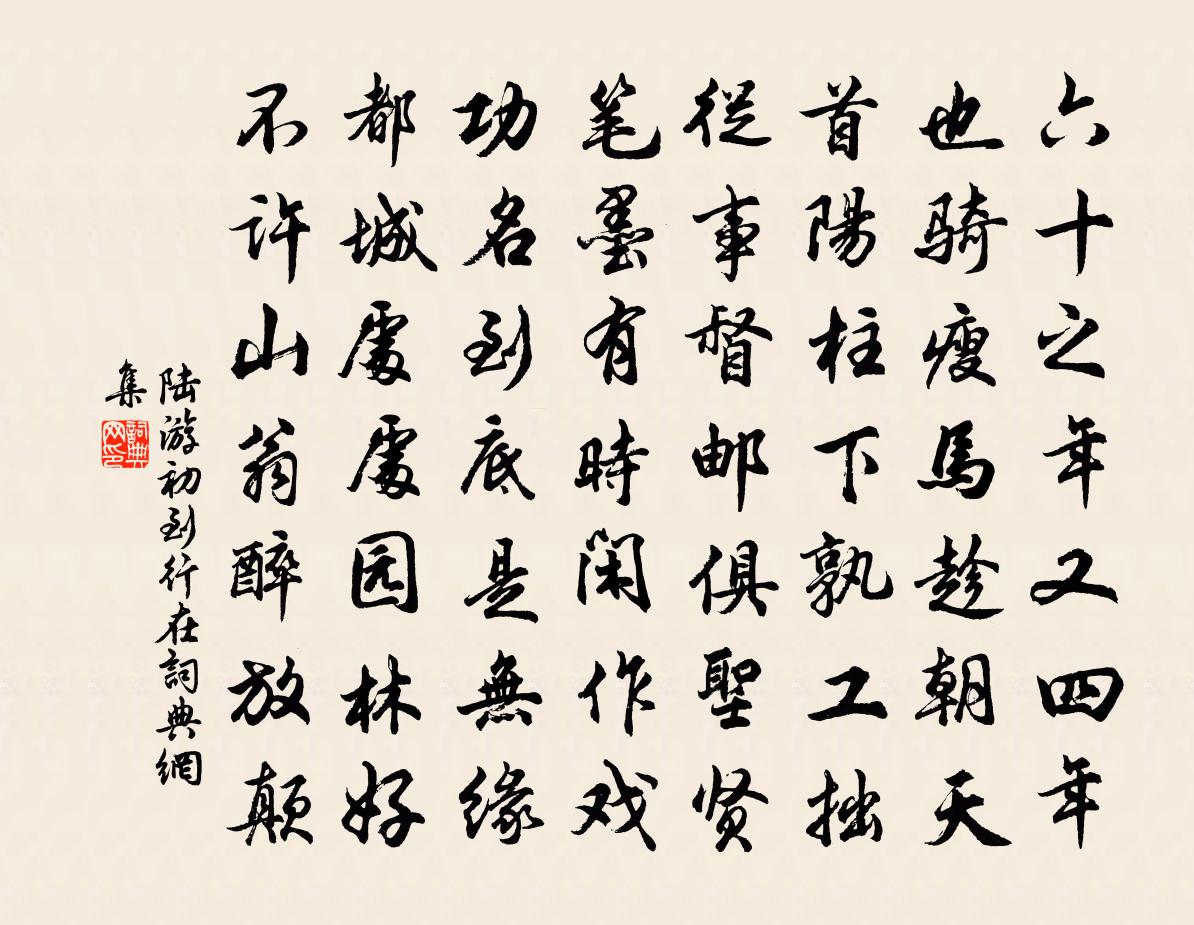 六十之年又四年
也骑瘦馬趁朝天
首陽柱下孰工拙
從事督邮俱聖贤
笔墨有時闲作戏
功名到底是無缘
都城處處园林好
不许山翁醉放颠
陆游初到行在詞典網
集
詞典
网印